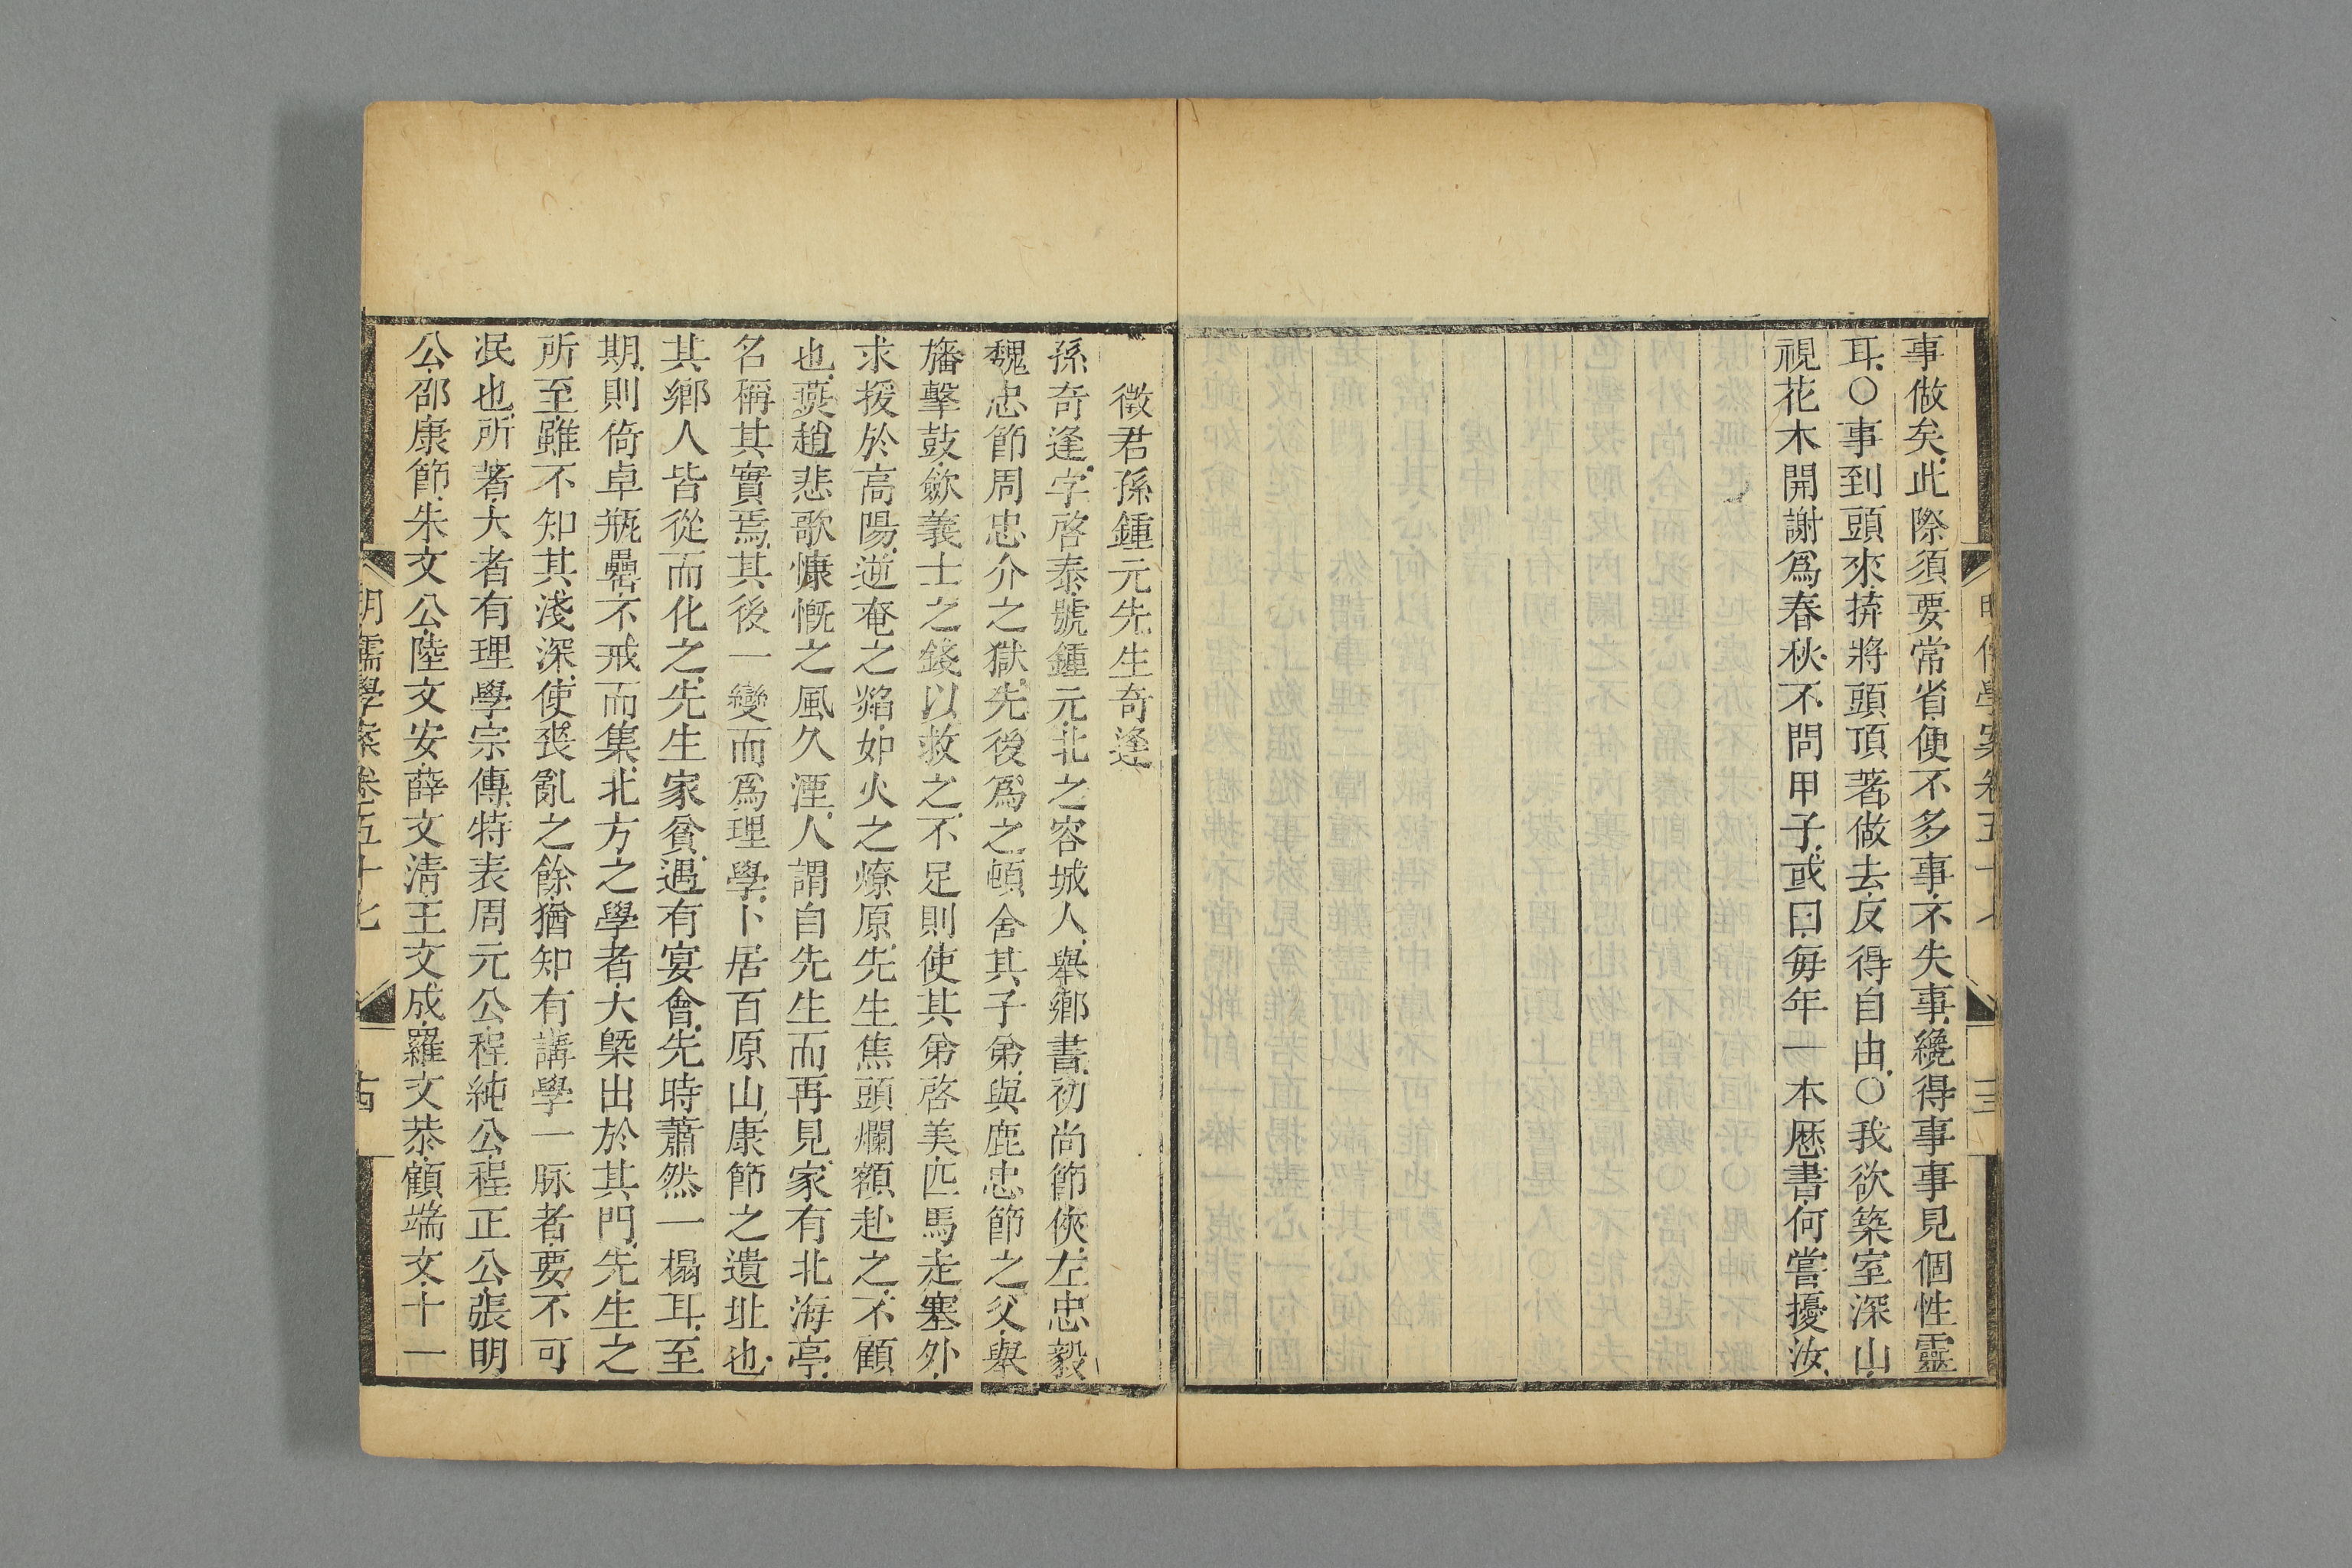 事做矣此際須要常省便不多事不失事纔得事事見個性靈
耳○事到頭來拚將頭頂著做去反得自由○我欲築室深山
視花木開謝爲春秋不問甲子或曰每年一本曆書何嘗擾汝
徵君孫鍾元先生奇逢
孫奇逢字啓泰號鍾元北之容城人舉鄉書初尚節俠左忠毅
魏忠節周忠介之獄先後爲之頓舍其子弟與鹿忠節之父舉
旛擊鼓歛義士之錢以救之不足則使其弟啓美匹馬走塞外
求援於高陽逆奄之燄如火之燎原先生焦頭爛額赴之不顧
也燕趙悲歌慷慨之風久湮人謂自先生而再見家有北海亭
名稱其實焉其後一變而爲理學卜居百原山康節之遺址也
其鄉人皆從而化之先生家貧遇有宴會先時蕭然一榻耳至
期則倚卓瓶罍不戒而集北方之學者大槩出於其門先生之
所至雖不知其淺深使喪亂之餘猶知有講學一脉者要不可
泯也所著大者有理學宗傳特表周元公程純公程正公張明
公邵康節朱文公陸文安薛文清王文成羅文恭顧端文十一
明儒學案卷五十七